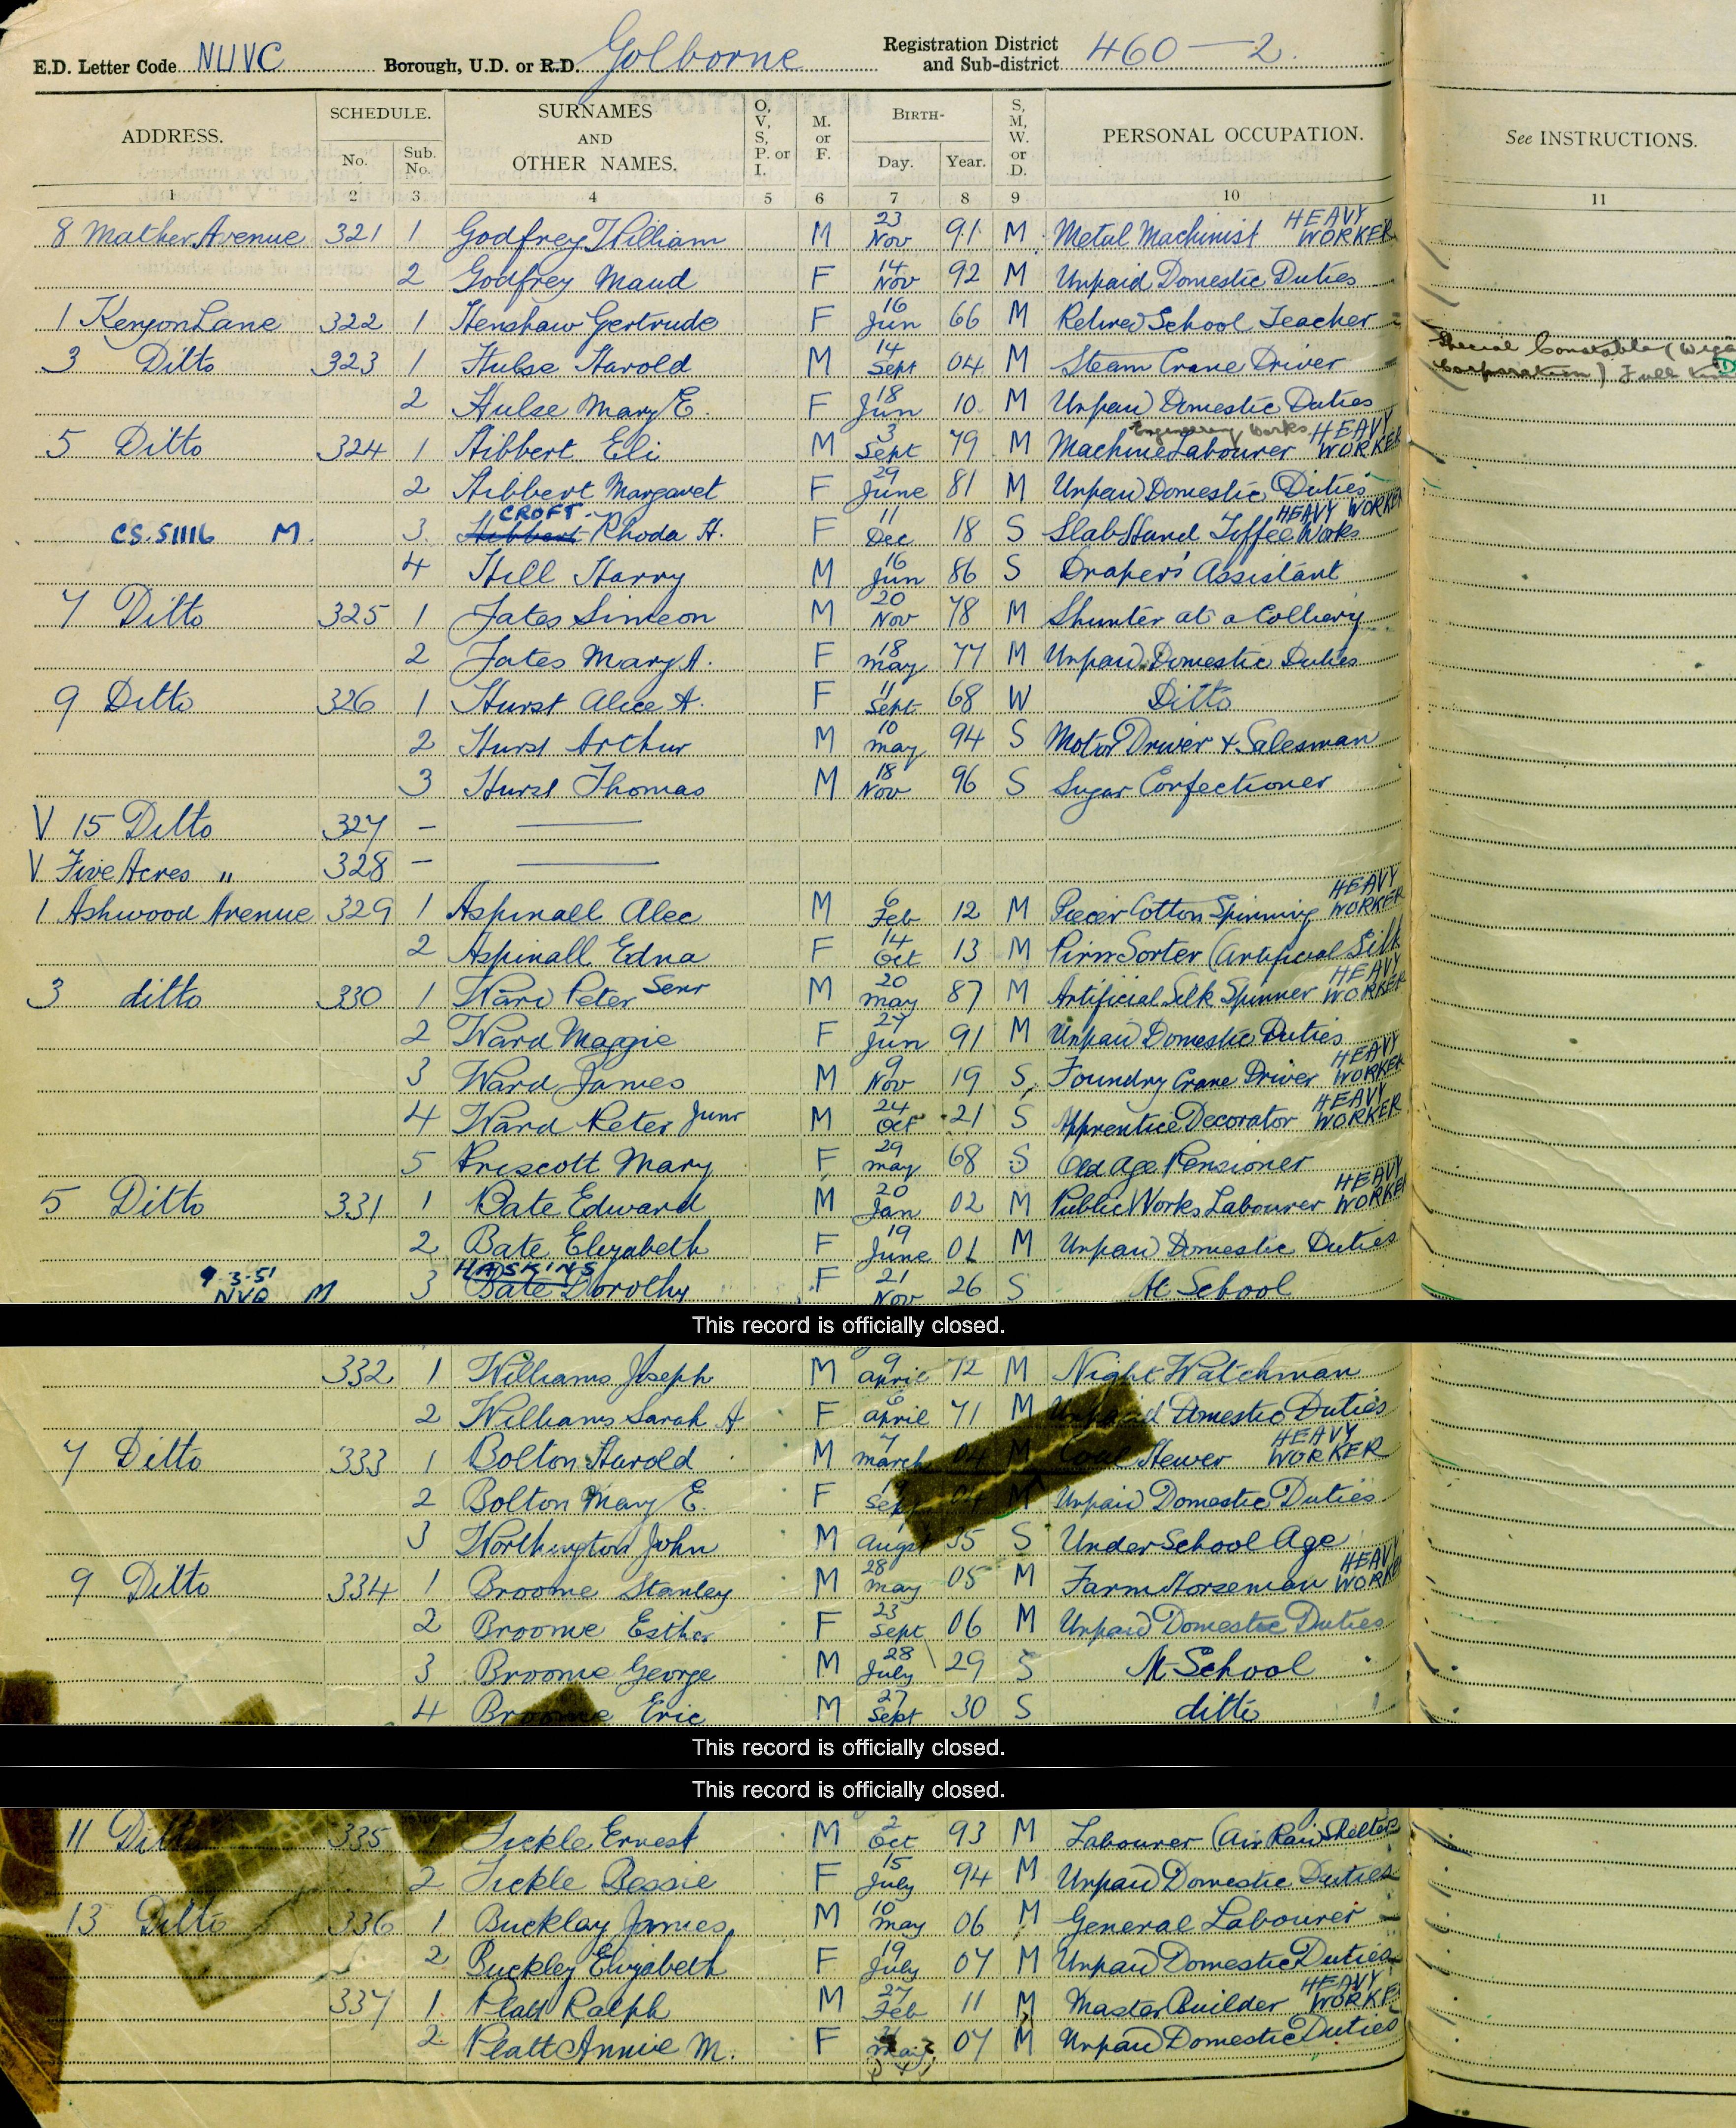 E.D. Letter Code NUVC Borough, U.D. or R.D. Golborne Registration District and Sub-district 460—2.
ADDRESS. SCHEDULE. No. Sub. No. SURNAMES AND OTHER NAMES. O, V, S, P. or I. M. or F. BIRTH- Day. Year. S, M, W. or D. PERSONAL OCCUPATION. See INSTRUCTIONS.
1 2 3 4 5 6 7 8 9 10 11
8 Mather Avenue 321 1 Godfrey William M 23 Nov 91 M Metal Machinist HEAVY WORKER
2 Godfrey Maud F 14 Nov 92 M Unpaid Domestic Duties
1 Kenyon Lane 322 1 Henshaw Gertrude F 16 Jun 66 M Retired School Teacher
3 Ditto 323 1 Hulse Harold M 14 Sept 04 M Steam Crane Driver Special Constable (Corporation) Full
2 Hulse Mary E. F 18 Jun 10 M Unpaid Domestic Duties
5 Ditto 324 1 Hibbert Eli M 3 Sept 79 M Machine Labourer Engineering Works HEAVY WORKER
2 Hibbert Margaret F 29 June 81 M Unpaid Domestic Duties
CS.51116 M. 3. Hibbert CROFT Rhoda H. F 11 Dec 18 S Slab Hand Toffee Works HEAVY WORKER
4 Hill Harry M 16 Jun 86 S Drapers' Assistant
7 Ditto 325 1 Jates Simeon M 20 Nov 78 M Shunter at a Colliery
2 Jates Mary A. F 18 May 77 M Unpaid Domestic Duties
9 Ditto 326 1 Hurst Alice A. F 11 Sept 68 W Ditto
2 Hurst Arthur M 10 May 94 S Motor Driver & Salesman
3 Hurst Thomas M 18 Nov 96 S Sugar Confectioner
V 15 Ditto 327 –
V Five Acres " 328 –
1 Ashwood Avenue 329 1 Aspinall Alec M 6 Feb 12 M Piecer Cotton Spinning HEAVY WORKER
2 Aspinall Edna F 14 Oct 13 M Pirn Sorter (Artificial Silk
3 ditto 330 1 Ward Peter Senr M 20 May 87 M Artificial Silk Spinner HEAVY WORKER
2 Ward Maggie F 27 Jun 91 M Unpaid Domestic Duties
3 Ward James M 9 Nov 19 S Foundry Crane Driver HEAVY WORKER
4 Ward Peter Junr M 24 Oct 21 S Apprentice Decorator HEAVY WORKER
5 Priscott Mary F 29 May 68 S Old Age Pensioner
5 Ditto 331 1 Bate Edward M 20 Jan 02 M Public Works Labourer HEAVY WORKER
2 Bate Elizabeth F 19 June 01 M Unpaid Domestic Duties
9.3.51 NVQ M 3 Bate HASKINS Dorothy F 21 Nov 26 S At School
This record is officially closed.
332 1 Williams Joseph M 9 April 72 M Night Watchman
2 Williams Sarah A F 6 April 71 M Unpaid Domestic Duties
7 Ditto 333 1 Bolton Harold M 7 March 04 M Coal Hewer HEAVY WORKER
2 Bolton Mary E. F Sept 04 M Unpaid Domestic Duties
3 Worthington John M 1 Augst 35 S Under School Age
9 Ditto 334 1 Broome Stanley M 28 May 05 M Farm Horseman HEAVY WORKER
2 Broome Esther F 23 Sept 06 M Unpaid Domestic Duties
3 Broome George M 28 July 29 S At School
4 Broome Eric M 27 Sept 30 S ditto
This record is officially closed.
This record is officially closed.
11 Ditto 335 Tickle Ernest M 2 Oct 93 M Labourer (Air Raid Shelters
2 Tickle Bessie F 15 July 94 M Unpaid Domestic Duties
13 Ditto 336 1 Buckley James M 10 May 06 M General Labourer
2 Buckley Elizabeth F 19 July 07 M Unpaid Domestic Duties
337 1. Platt Ralph M 27 Feb 11 M Master Builder HEAVY WORKER
2. Platt Annie M. F May 07 M Unpaid Domestic Duties